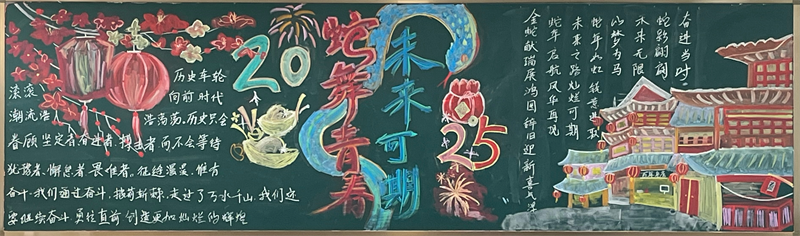 历史车轮
滚滚向前 时代
潮流浩浩荡荡。历史只会
眷顾坚定者奋进者、搏击者 而不会等待
犹豫者、懈怠者、畏难者。征途漫漫,惟有
奋斗。我们通过奋斗,披荆斩棘,走过了万水千山。我们还
要继续奋斗 勇往直前 创造更加灿烂的辉煌
20
蛇舞青春
未来可期
25
奋进当时
蛇影翩翩
未来无限
以梦为马
蛇年如虹
未来之路灿烂可期
蛇年启航风华再现
金蛇献瑞展鸿图 辞旧迎新喜气洋